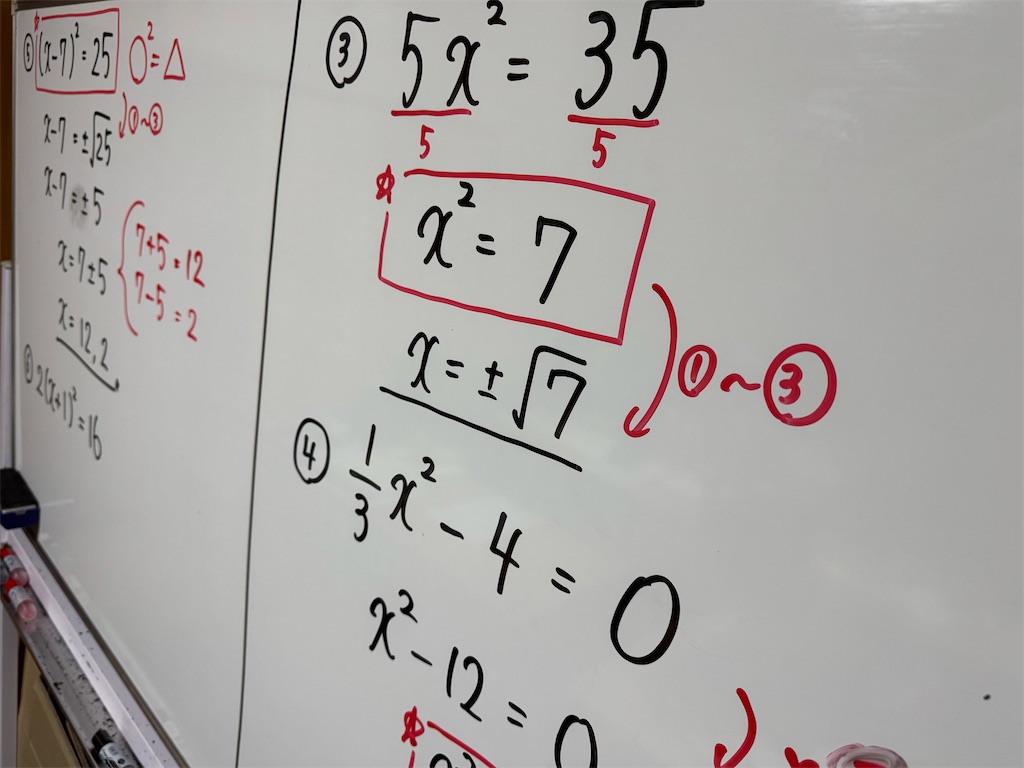 (x-7)² = 25 ○² = △
① ~ ③
x-7 = ±√25
x-7 = ±5
7+5 = 12
x = 7±5
7-5 = 2
x = 12, 2
2(x+1)² = 16
③ 5x² = 35
5 5
x² = 7
x = ±√7
① ~ ③
④ 1/3 x² - 4 = 0
x² - 12 = 0